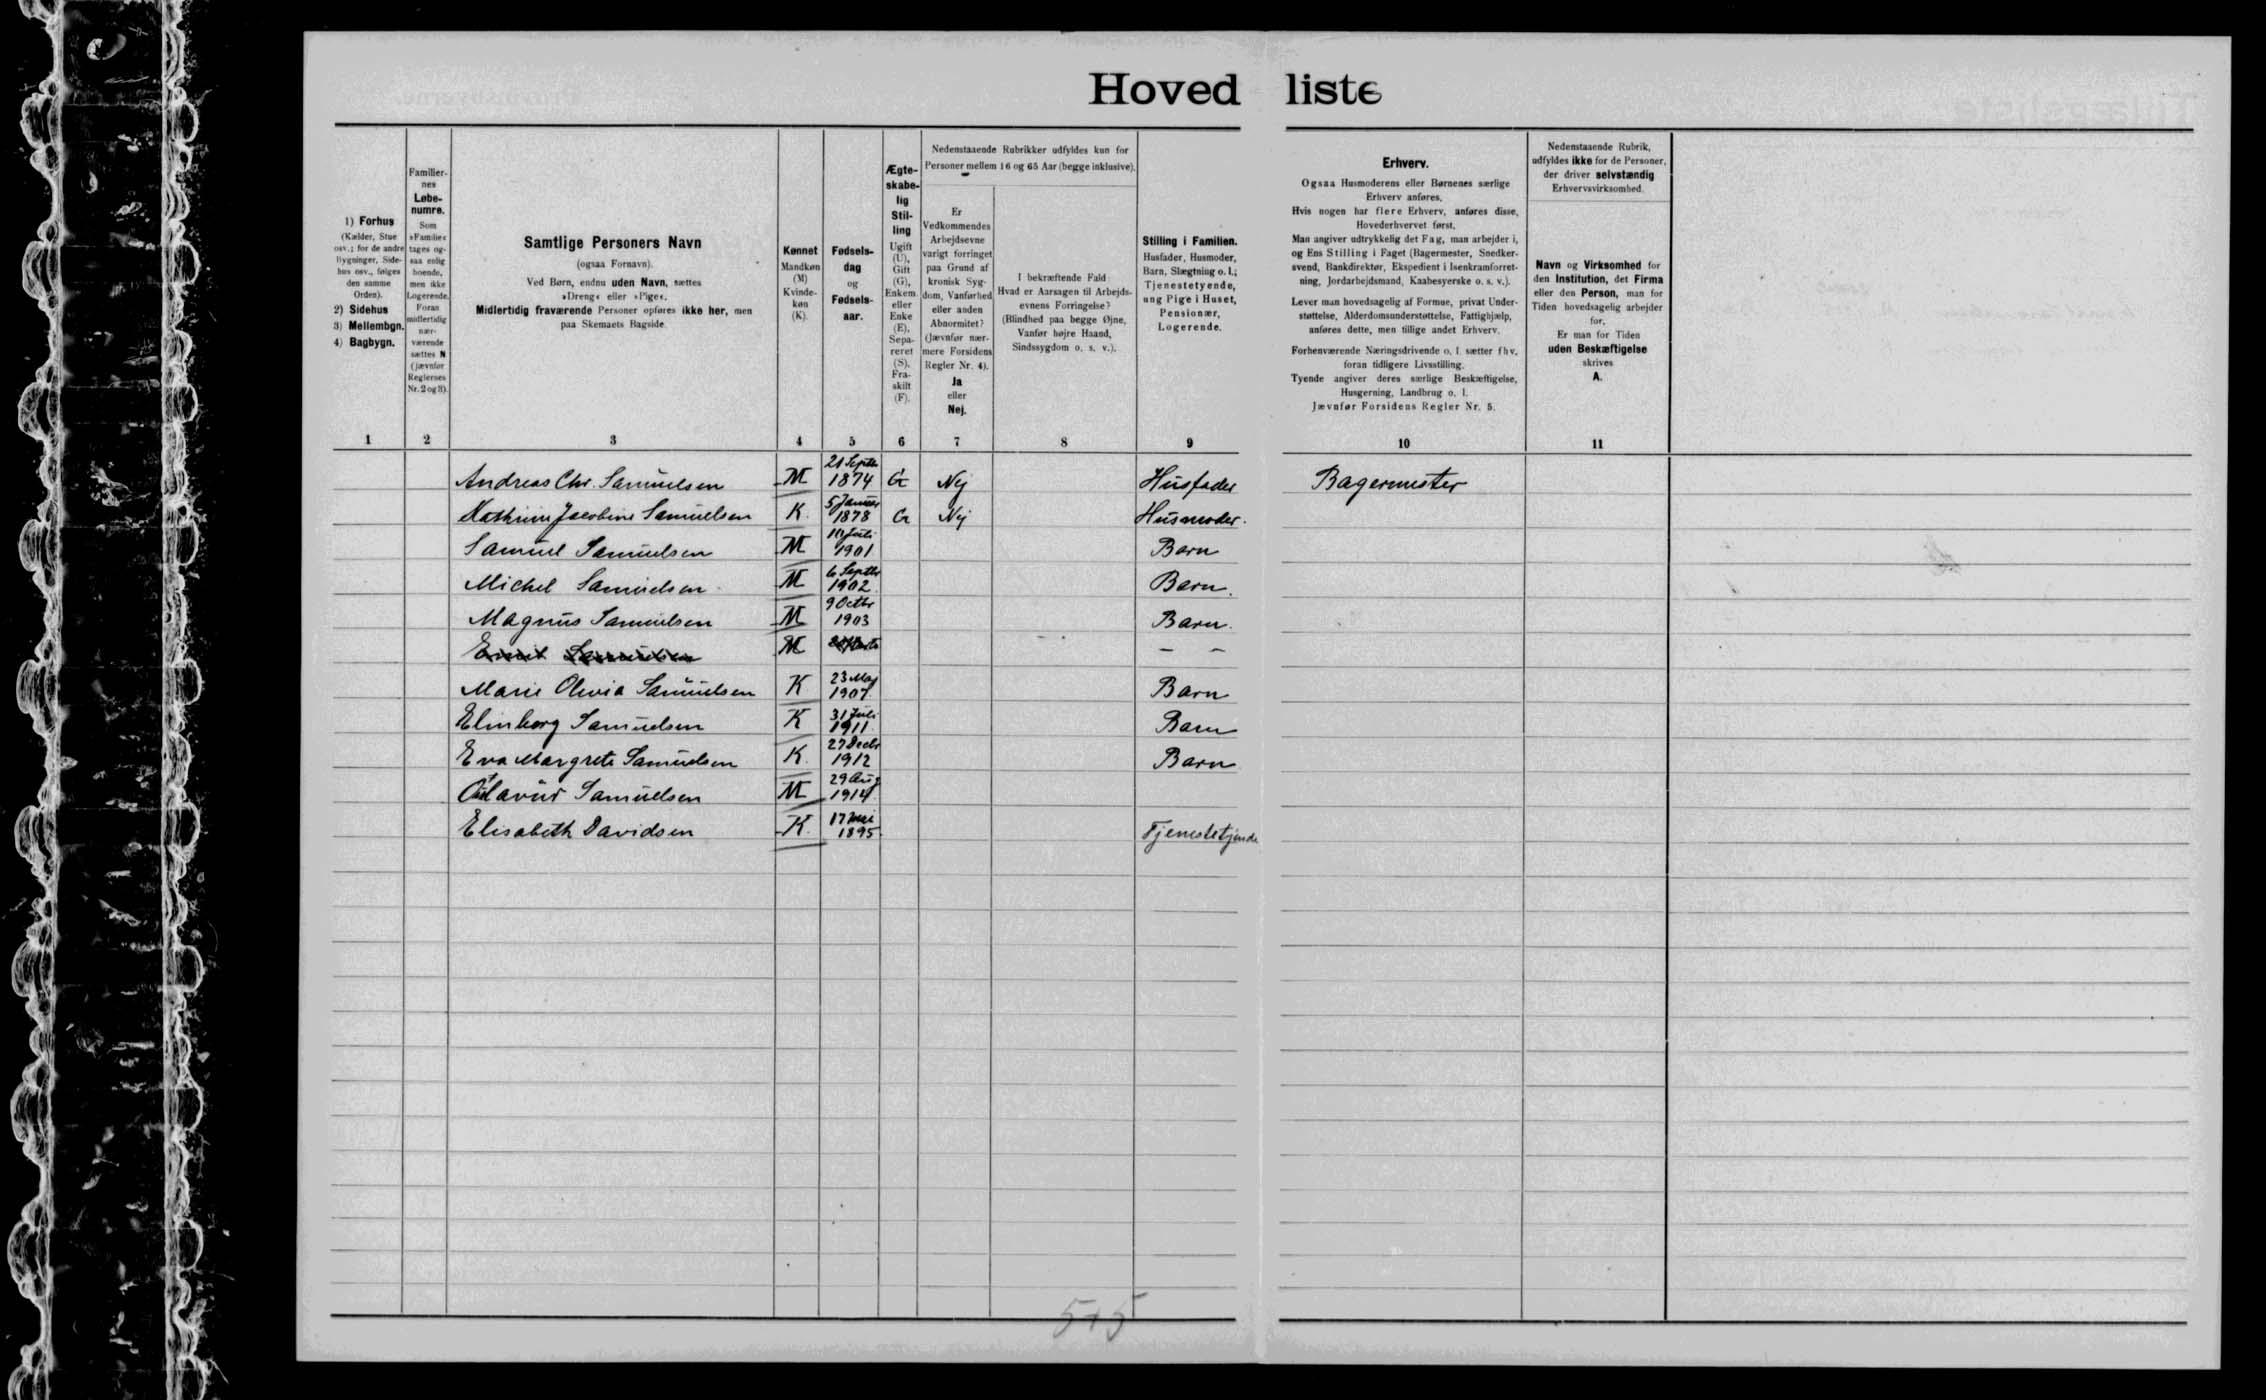 Hovedliste
1) Forhus
(Kælder, Stue
osv.; for de andre
Bygninger, Side-
hus osv., følges
den samme
Orden).
2) Sidehus
3) Mellembgn.
4) Bagbygn.
1
Familier-
nes
Løbe-
numre.
Som
»Familie«
tages og-
saa enlig
boende,
men ikke
Logerende.
Foran
midlertidig
nær-
værende
sættes N
(jævnfør
Reglernes
Nr. 2 og 3).
2
Samtlige Personers Navn
(ogsaa Fornavn).
Ved Børn, endnu uden Navn, sættes
»Dreng« eller »Pige«.
Midlertidig fraværende Personer opføres ikke her, men
paa Skemaets Bagside.
3
Kønnet
Mandkøn
(M)
Kvinde-
køn
(K).
4
Fødsels-
dag
og
Fødsels-
aar.
5
Ægte-
skabe-
lig
Stil-
ling
Ugift
(U),
Gift
(G),
Enkem.
eller
Enke
(E),
Sepa-
reret
(S),
Fra-
skilt
(F).
6
Nedenstaaende Rubrikker udfyldes kun for
Personer mellem 16 og 65 Aar (begge inklusive).
Er
Vedkommendes
Arbejdsevne
varigt forringet
paa Grund af
kronisk Syg-
dom, Vanførhed
eller anden
Abnormitet?
(Jævnfør nær-
mere Forsidens
Regler Nr. 4).
Ja
eller
Nej.
7
I bekræftende Fald:
Hvad er Aarsagen til Arbejds-
evnens Forringelse?
(Blindhed paa begge Øjne,
Vanfør højre Haand,
Sindssygdom o. s. v.).
8
Stilling i Familien.
Husfader, Husmoder,
Barn, Slægtning o. l.;
Tjenestetyende,
ung Pige i Huset,
Pensionær,
Logerende.
9
Erhverv.
Ogsaa Husmoderens eller Børnenes særlige
Erhverv anføres.
Hvis nogen har flere Erhverv, anføres disse,
Hovederhvervet først.
Man angiver udtrykkelig det Fag, man arbejder i,
og Ens Stilling i Faget (Bagermester, Snedker-
svend, Bankdirektør, Ekspedient i Isenkramforret-
ning, Jordarbejdsmand, Kaabesyerske o. s. v.).
Lever man hovedsagelig af Formue, privat Under-
støttelse, Alderdomsunderstøttelse, Fattighjælp,
anføres dette, men tillige andet Erhverv.
Forhenværende Næringsdrivende o. l. sætter fhv.
foran tidligere Livsstilling.
Tyende angiver deres særlige Beskæftigelse,
Husgerning, Landbrug o. l.
Jævnfør Forsidens Regler Nr. 5.
10
Nedenstaaende Rubrik,
udfyldes ikke for de Personer,
der driver selvstændig
Erhvervsvirksomhed.
Navn og Virksomhed for
den Institution, det Firma
eller den Person, man for
Tiden hovedsagelig arbejder
for.
Er man for Tiden
uden Beskæftigelse
skrives
A.
11
Andreas Chr. Samuelsen M 21 Septbr 1874 G Nej Husfader Bagermester
Kathrine Jacobine Samuelsen K. 5 Januar 1878 G Nej Husmoder.
Samuel Samuelsen M Juli 1901 Barn
Michel Samuelsen M 6 Septbr 1902 Barn.
Magnus Samuelsen M 9 Octbr 1903 Barn.
Emil Samuelsen M — —
Marie Olivia Samuelsen K 23 Maj 1907. Barn
Elinborg Samuelsen K 31 Juli 1911. Barn
Eva Margrete Samuelsen K. 27 Decbr 1912 Barn
Samuelsen M 29 Aug 1914.
Elisabeth Davidsen K. 17 1895. Tjenestetjende
5+5